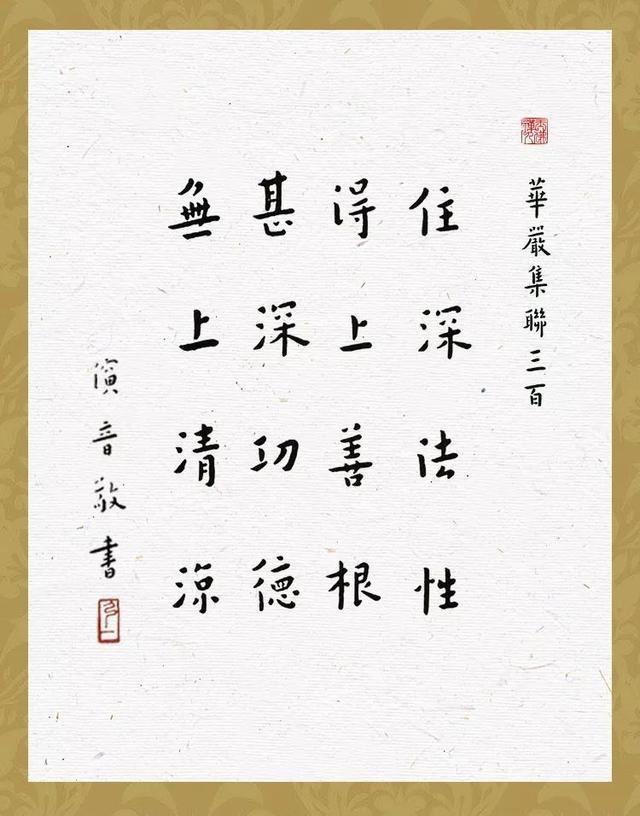 華嚴集聯三百
住深法性
得上善根
甚深功德
無上清涼
演音敬書